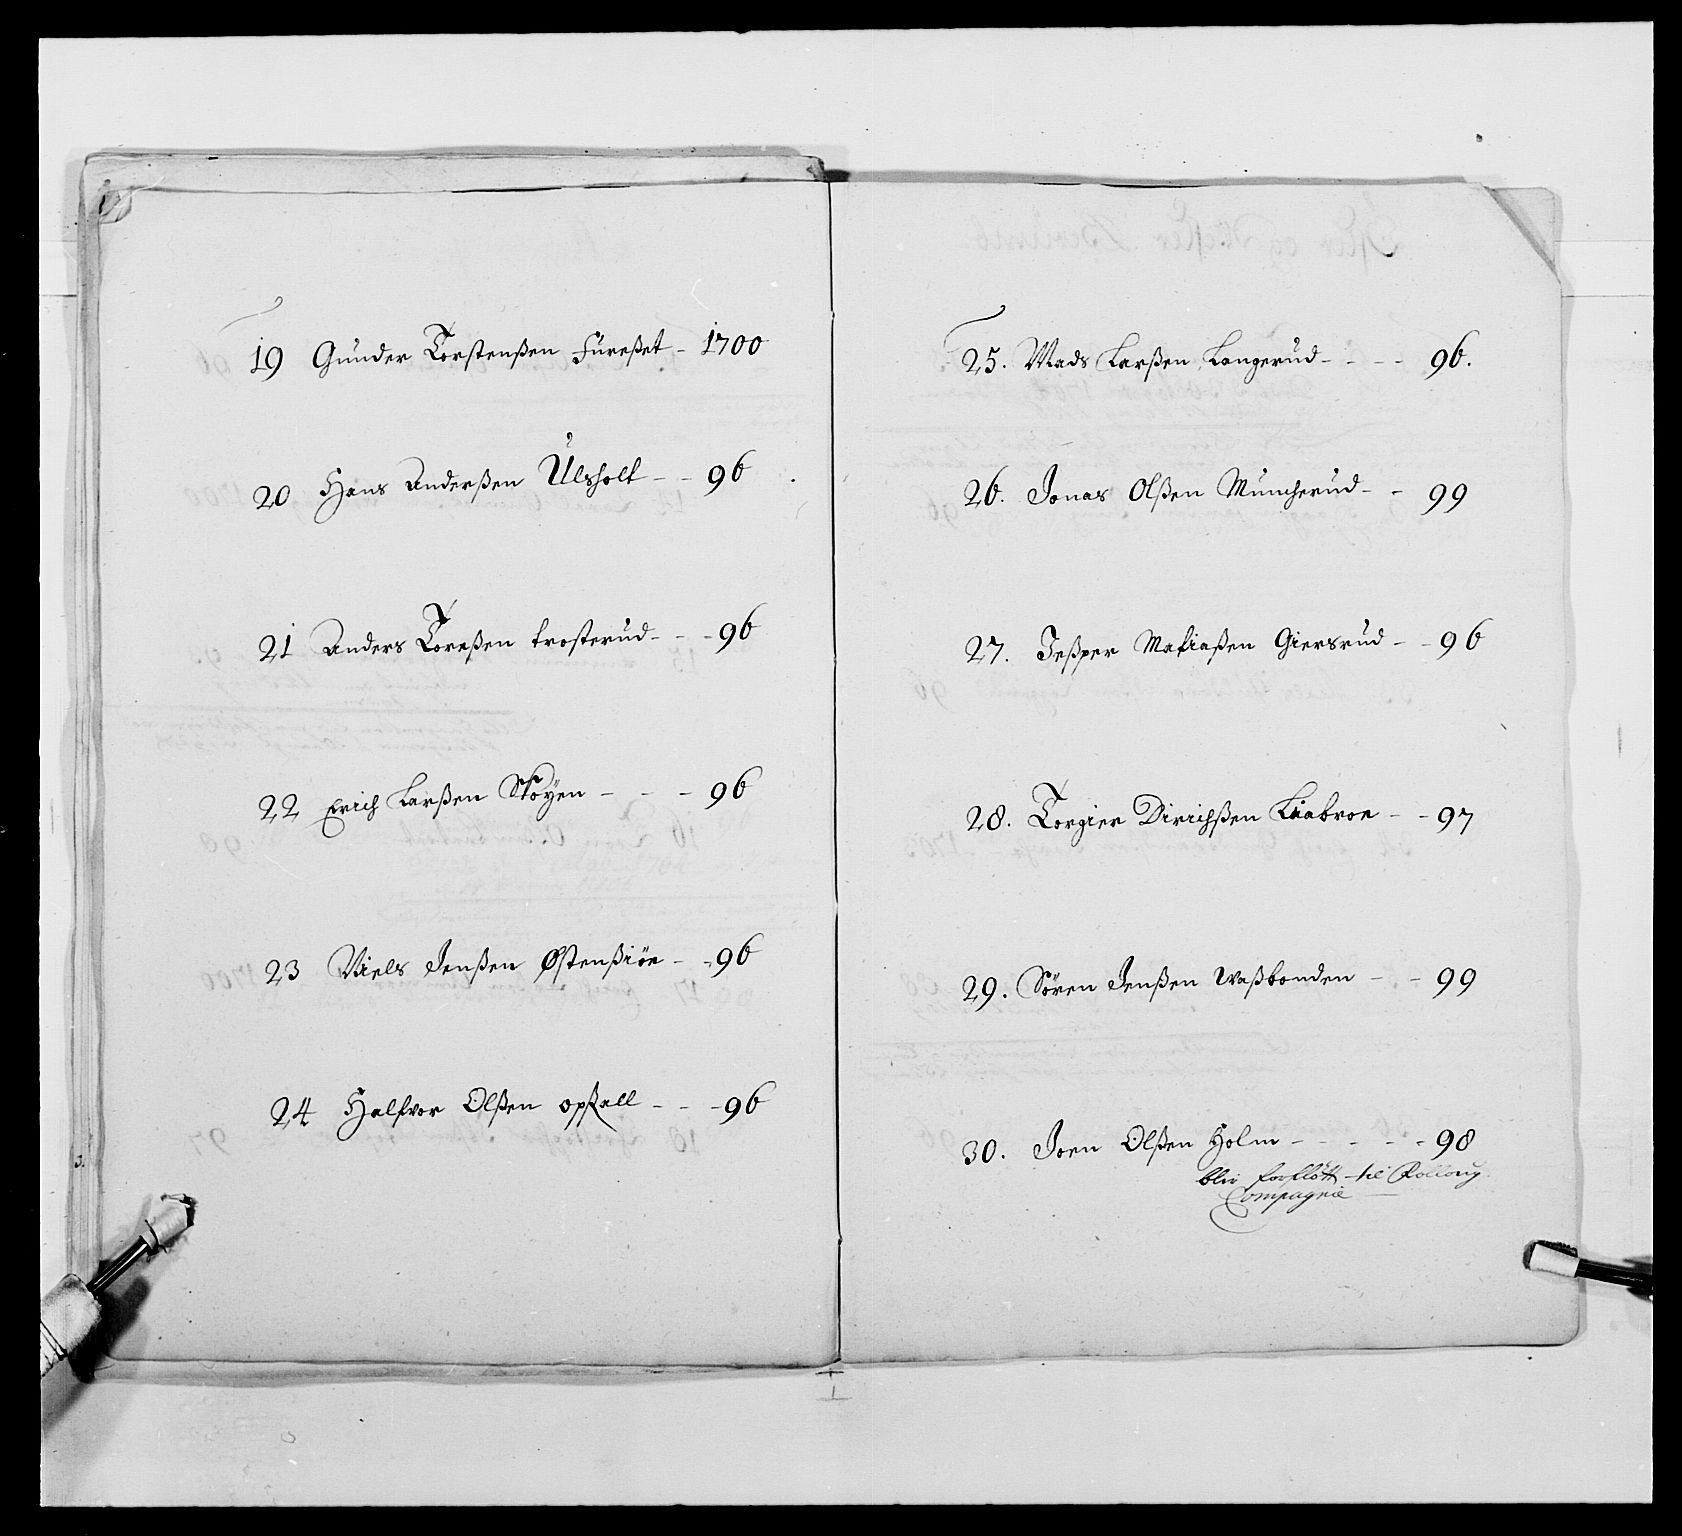 19 Gunder Torstenßen Fureßet - 1700
20 Hans Anderßen Ulsholt - - 96
21 Anders Toreßen trosterud - - - 96
22 Erich Larßen Støÿen - - - 96
23 Niels Jenßen Østenßiöe - - 96
24 Halfvor Olßen opßall - - - 96
25. Mads Larßen Langerud - - - - 96.
26. Jonas Olßen Muncherud - - 99
27. Jeßper Matiaßen Giersrud - - 96
28. Torgier Dirichßen Liabroe - - 97
29. Sören Jenßen Waßbonden - - - 99
30. Joen Olßen Holm - - - - - 98
blev forflött til Rolloug
Compagnie